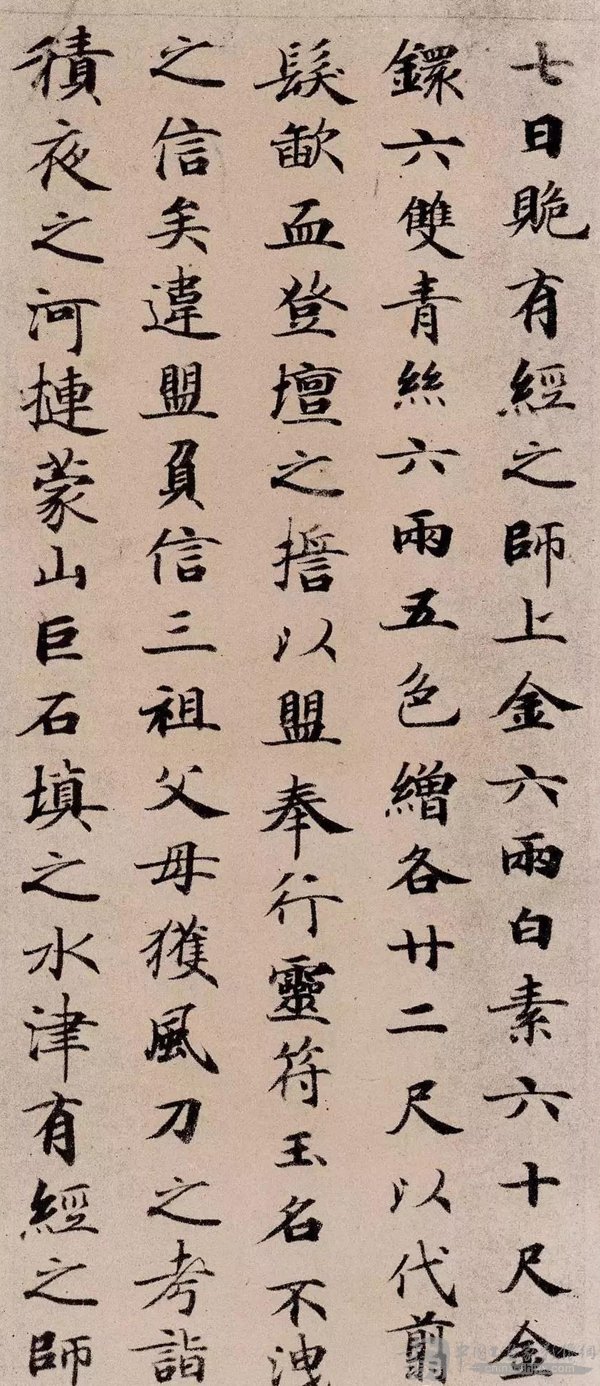 七日有經之師上金六兩白素六十尺金
鐶六雙青絲六兩五色繒各廿二尺以代翦
髮歃血登壇之誓以盟奉行靈符玉名不洩
之信矣違盟負信三祖父母獲風刀之考詣
積夜之河摙蒙山巨石填之水津有經之師